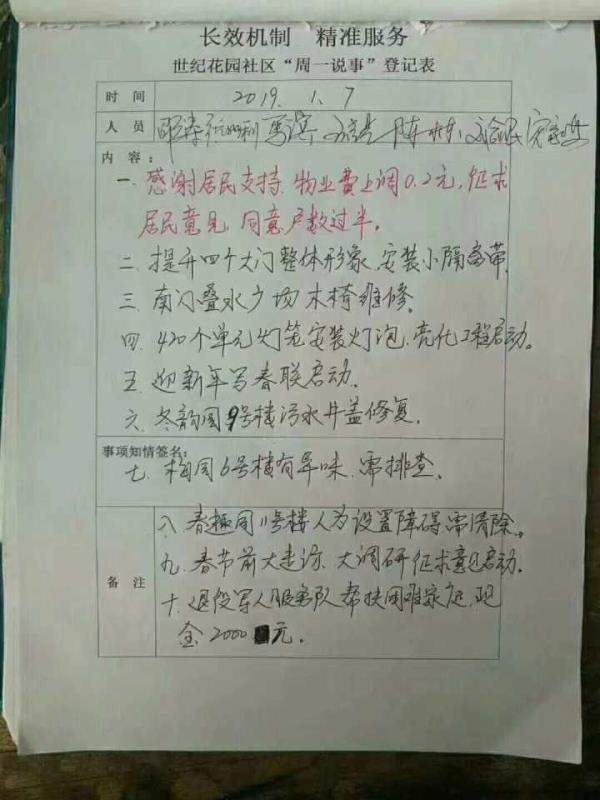 长效机制 精准服务
世纪花园社区“周一说事”登记表
时 间 2019. 1. 7
人 员
内 容：
一. 感谢居民支持. 物业费上调0.2元, 征求
居民意见, 同意户数过半。
二. 提升四个大门整体形象. 安装小隔离带.
三. 南门叠水广场木椅维修.
四. 420个单元灯笼安装灯泡. 亮化工程启动。
五. 迎新年写春联启动.
六. 冬韵园9号楼污水井盖修复.
事项知情签名：
七. 梅园6号楼有异味. 需排查.
备 注
八. 春趣园11号楼人为设置障碍. 需清除。
九. 春节前大走访. 大调研征求意见启动.
十. 退役军人服务队帮扶困难家庭. 现
金2000元.